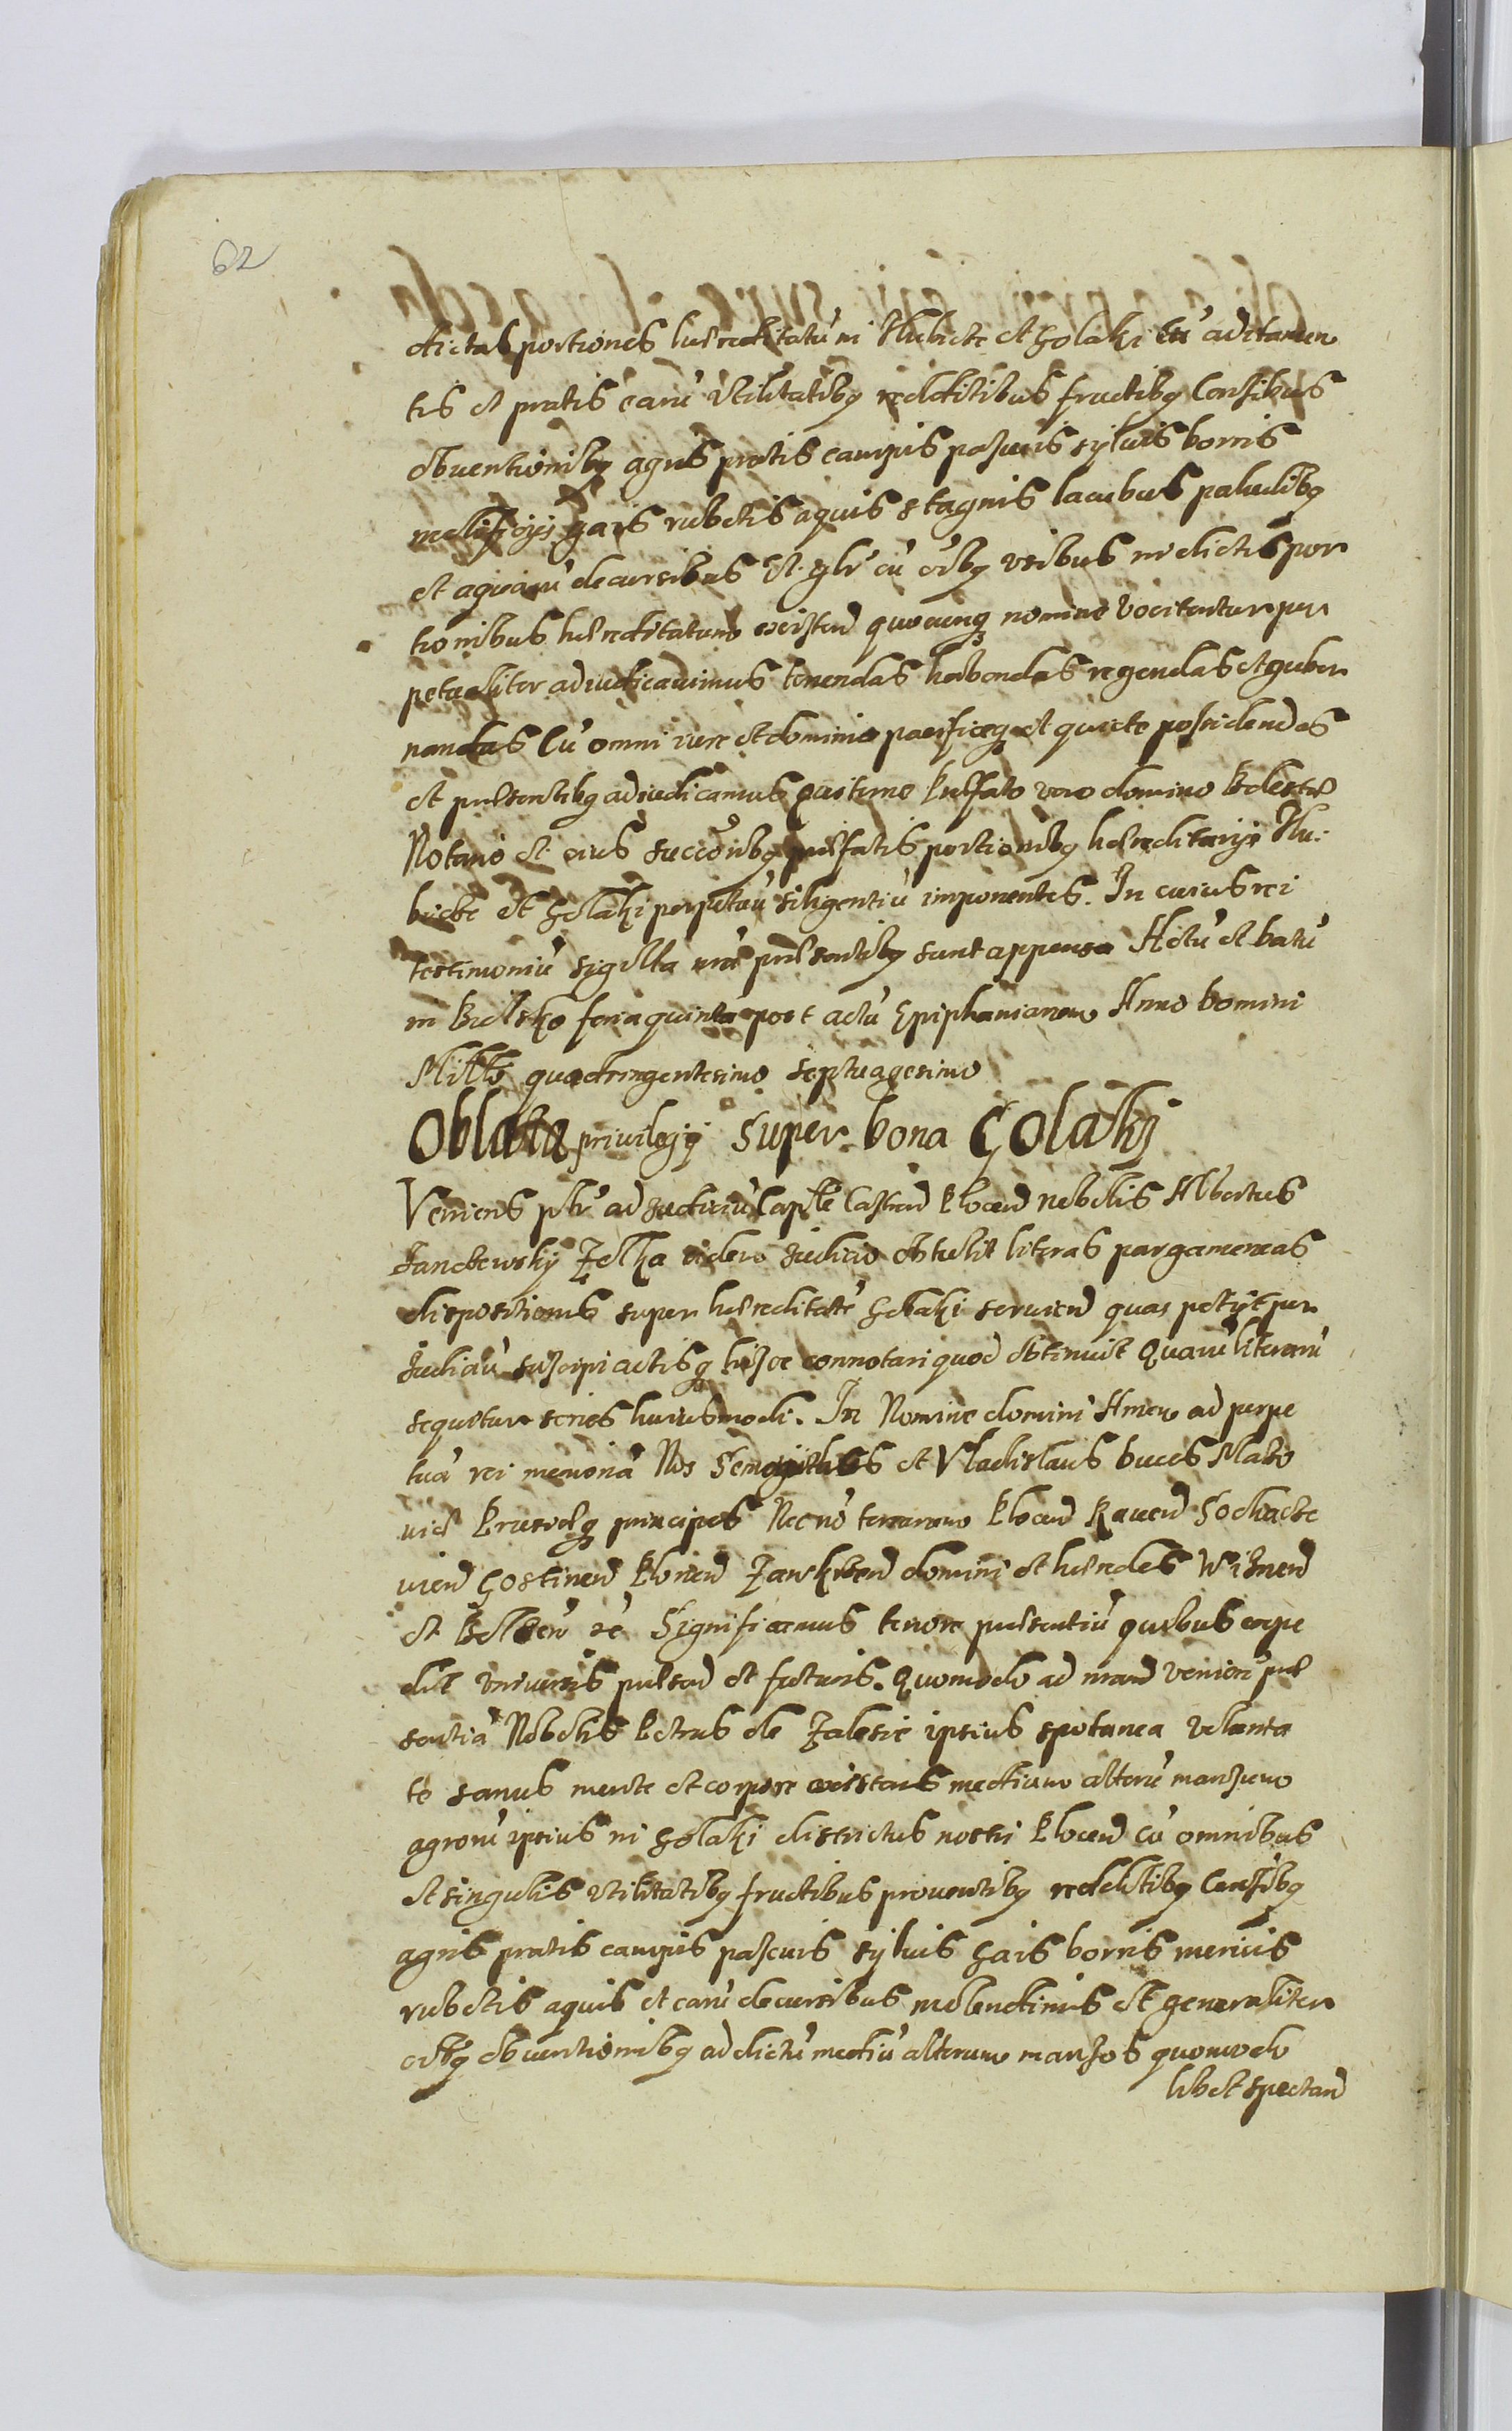 62
dictas portiones haereditatum in Kubicze et Golaki cũ aditamen
tis et pratis earũ vtilitatibq redditibus fructibq Censibus
obuentionibq agris pratis campis pascuis syluis borris
mellificijs gais rubetis aquis stagnis lacubus paludibq
et aquarũ decursibus Et glr̃ cũ oĩbq vsibus in dictis por
tionibus haereditatum existen quocunq nomine vocitentur per
petualiter adiudicauimus tenendas habendas regendas et guber
nandas Cũ omni iure et dominio pacificeq et quiete possidendas
et praesentibq adiudicamus Praefato vero domino
Notario et eius succōribq praefatis portionibq haereditarijs
et Golaki perpetuũ silentiũ imponentes. In cuius rei
testimoniũ sigilla nrã praesentibq sunt appensa Actũ et datũ
in Bielsko feria quinta post Epiphaniarum Anno Domini
Millo quadringentesimo septuagesimo
Oblata priuilegij super bona Golaky
Veniens plr̃ ad Iudiciũ Capłe Castren Plocen nobilis Albertus
Janczewsky Zolka eidem Iudicio obtulit literas pargameneas
dispositionis super haereditatẽ Golaki seruien quas petijt per
Iudiciũ suscipi actisq hisce connotari quod obtinuit Quarũ literarũ
sequitur series huiusmodi. In Nomine domini Amen ad perpe
tuã rei memoriã Nos Semouithus et Vladislaus Duces Mazo
uiae Russiaeq principes Necnõ terrarum Plocen Rauen Sochacze
uien Gostinen Plonen Zawkrzen domini et haeredes Wisnen
et Belzen &c̃ Significamus tenore praesentiũ quibus expe
dit vniuersis praesen et futuris. Quomodo ad nram veniens prae
sentiã Nobilis Petrus de Zalesie ipsius spotanea volunta
te sanus mente et corpore existens medium alterũ mansum
agrorũ ipsius in Golaki districtus nostri Plocen cũ omnibus
et singulis vtilitatibq fructibus prouentibq redditibq Censibq
agris pratis campis pascuis syluis Gais borris mericis
rubetis aquis et earũ decursibus molendinis et generaliter
oĩbq obuentionibq ad dictũ mediũ alterum mansos quomodo
libet spectan